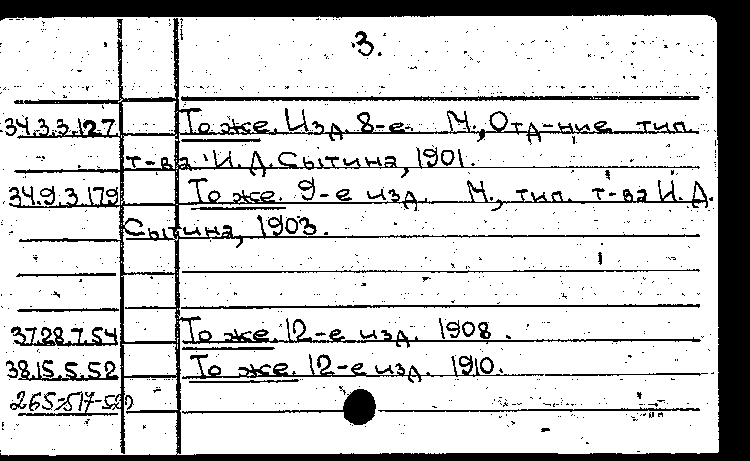 3.
34.3.3.127 То же. Изд. 8-е. М., Отд-ние тип.
т-ва И. Д. Сытина, 1901.
34.9.3.179 То же. 9-е изд. М., тип. т-ва И. Д.
Сытина, 1903.
37.28.7.54 То же. 12-е изд. 1908.
38.15.5.52 То же. 12-е изд. 1910.